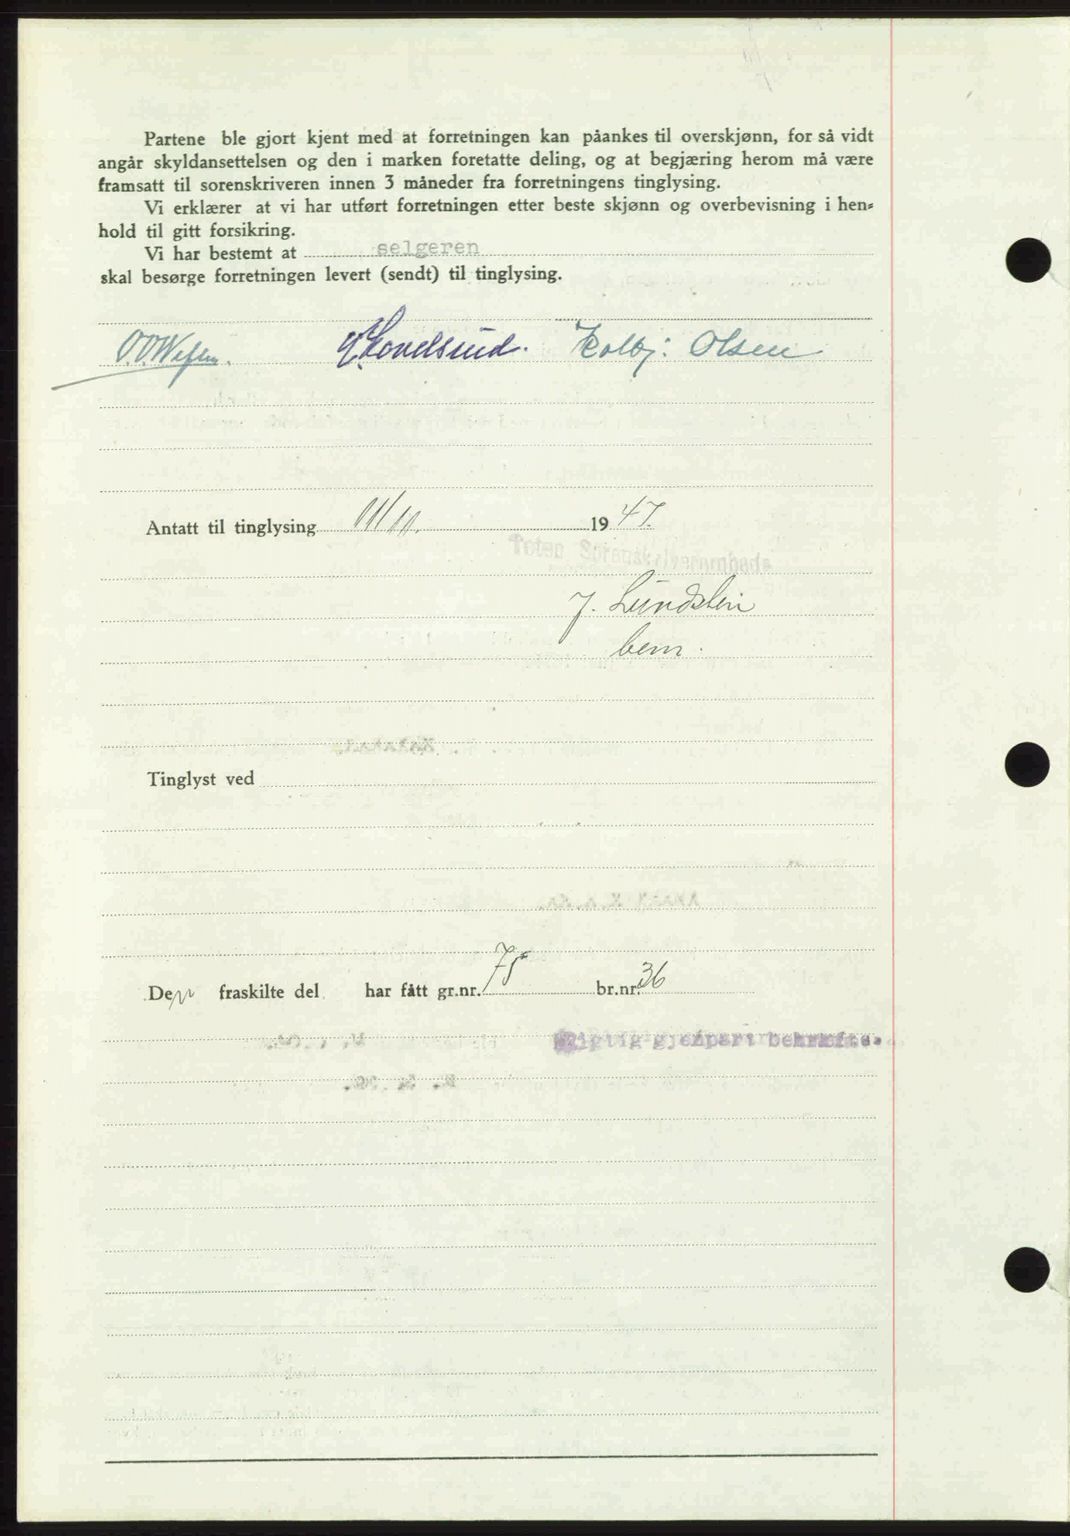 Partene ble gjort kjent med at forretningen kan påankes til overskjønn, for så vidt
angår skyldansettelsen og den i marken foretatte deling, og at begjæring herom må være
framsatt til sorenskriveren innen 3 måneder fra forretningens tinglysing.
Vi erklærer at vi har utført forretningen etter beste skjønn og overbevisning i hen-
hold til gitt forsikring.
Vi har bestemt at selgeren
skal besørge forretningen levert (sendt) til tinglysing.
Kolbj: Olsen
Antatt til tinglysing 11/11. 1947.
Toten Sorenskriverembede
J. Lundsten
bem.
Tinglyst ved
Den fraskilte del har fått gr.nr. 75 br.nr. 36
Rigtig gjenpart bekreftes